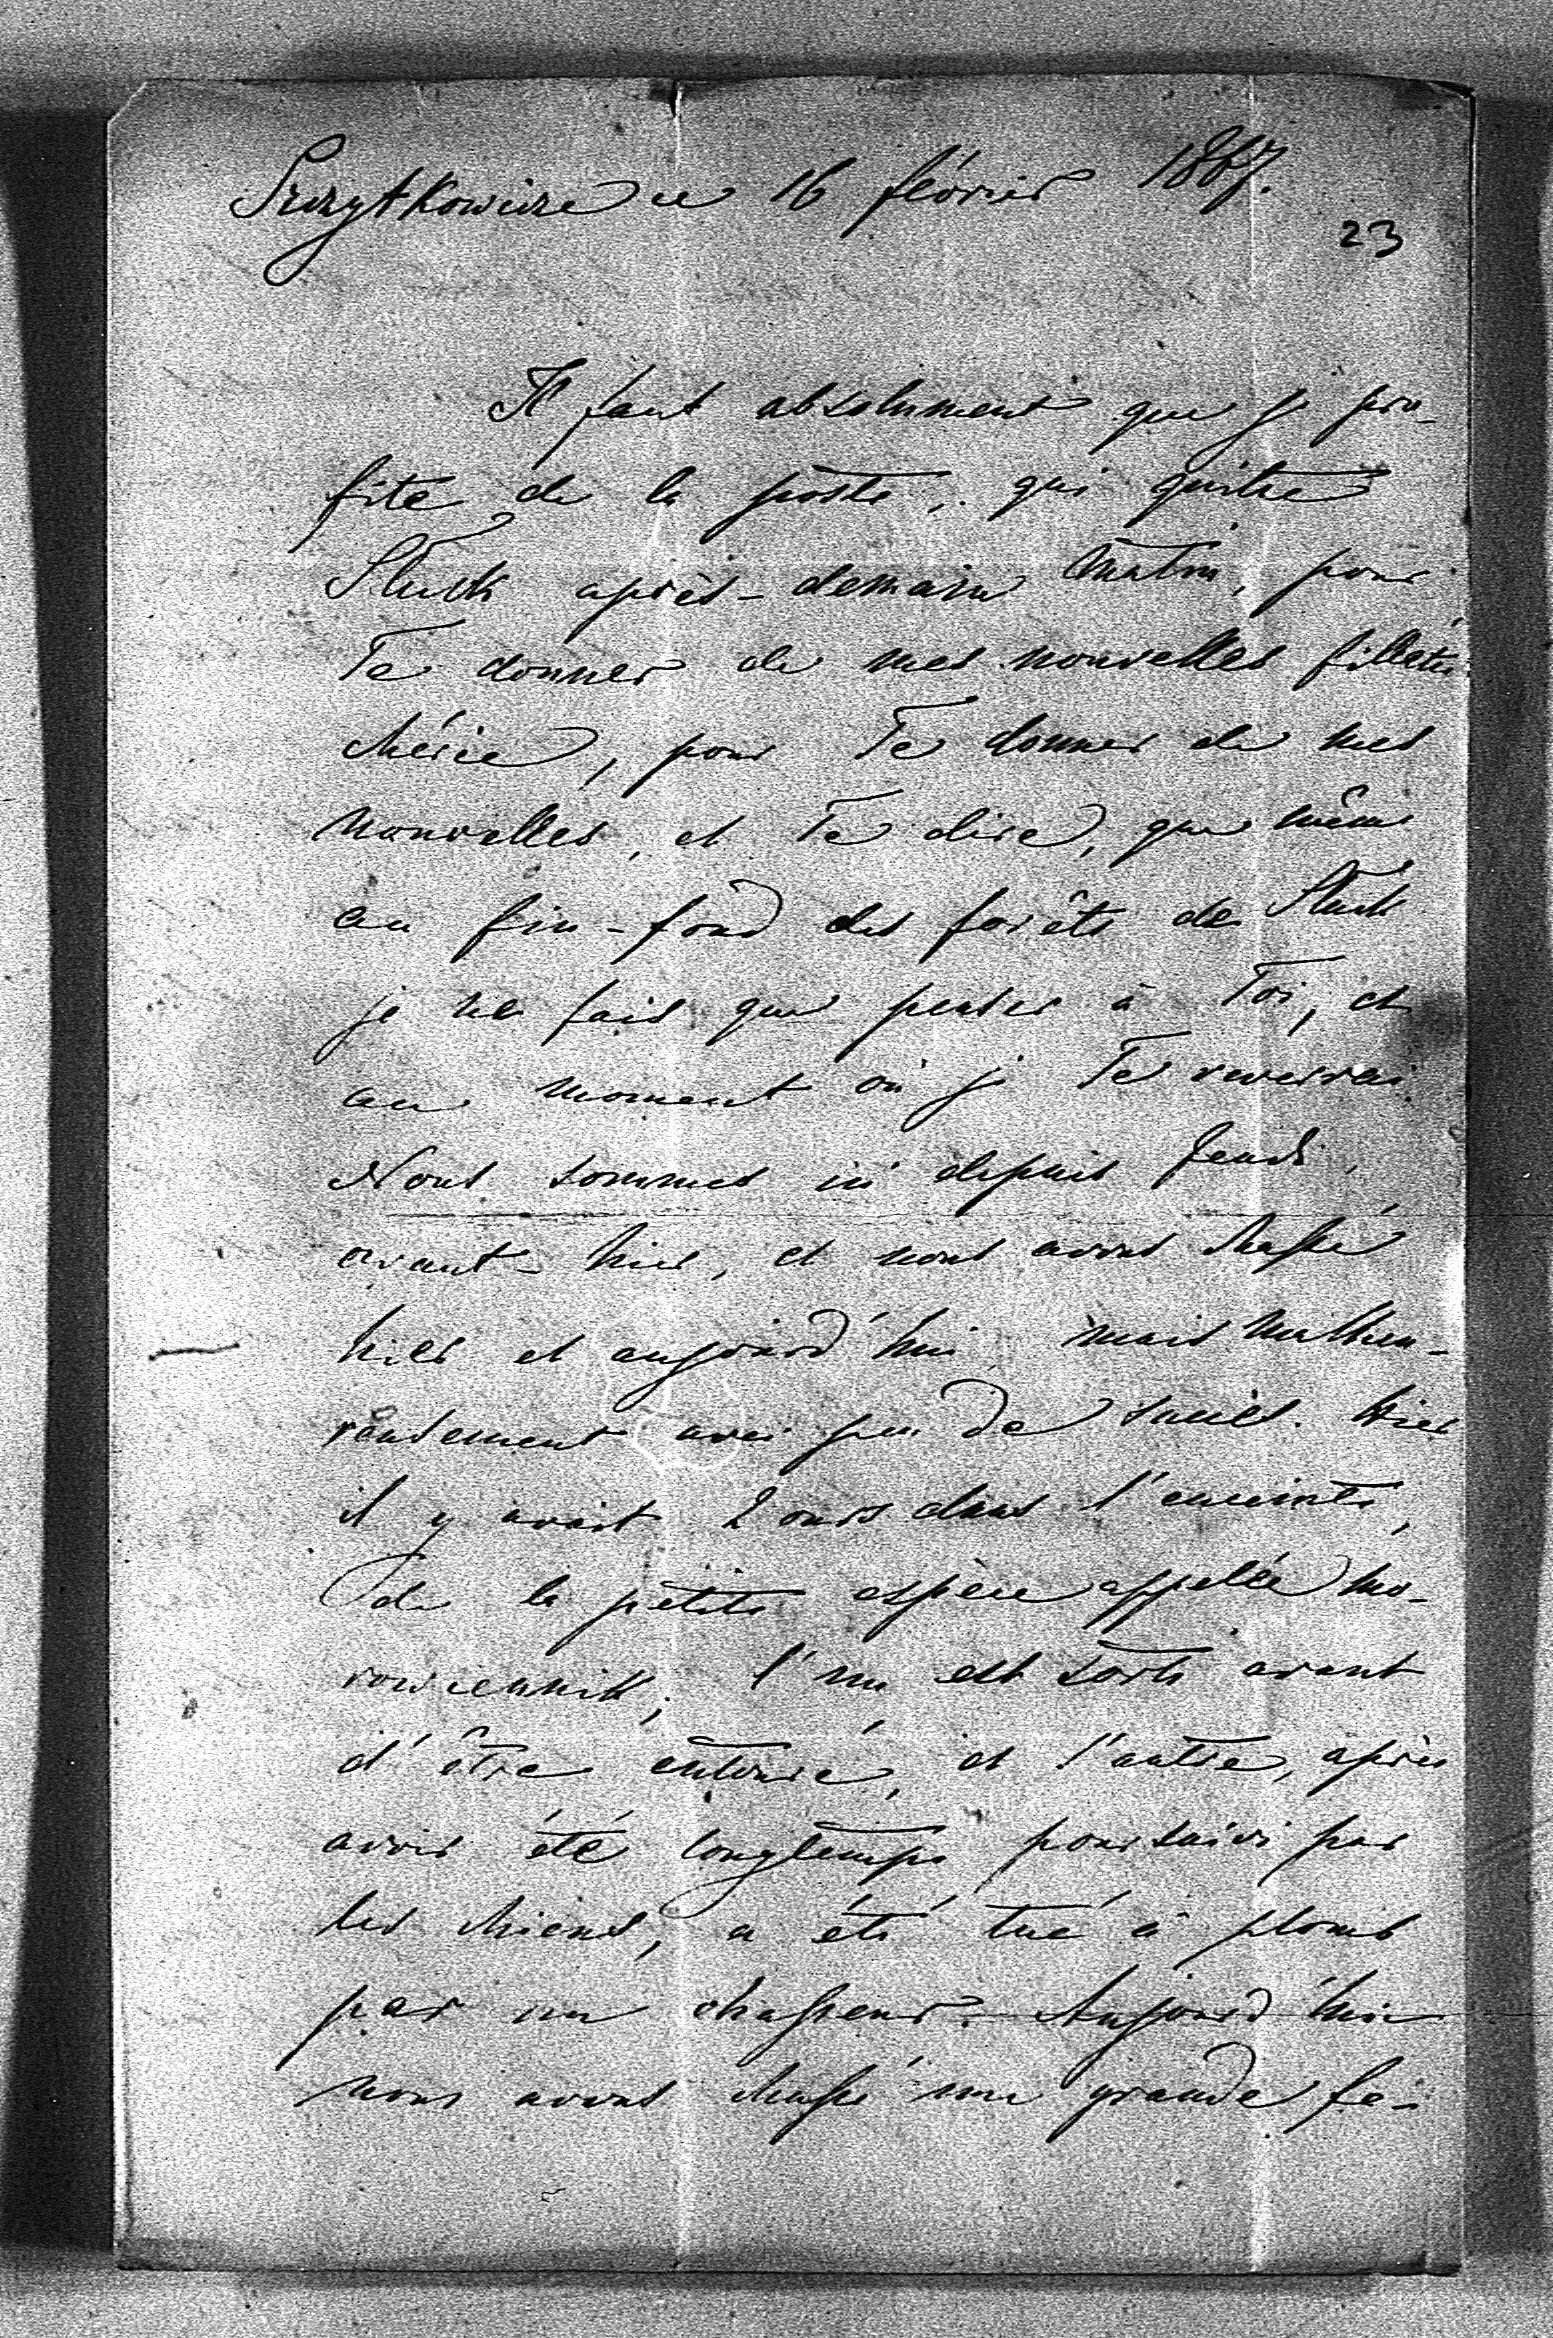 Szczytkowicze ce 16 février 1867.
23
Il faut absolument que je pro-
fite de la poste, qui quitte
Sluck après-demain matin, pour
Te donner de mes nouvelles fillette
chérie, pour Te donner de mes
nouvelles, et Te dire, que même
au fin-fond des forêts de Sluck
je ne fais que penser à Toi, et
au moment où je Te reverrai.
Nous sommes ici depuis Jeudi,
avant-hier, et nous avons chassé
hier et aujourd'hui, mais malheu-
reusement avec peu de succès. Hier
il y avait 2 ours dans l'enceinte,
de la petite espèce appelée mo-
rowiennik; l'un est sorti avant
d'être entouré, et l'autre, après
avoir été longtemps poursuivi par
les chiens, a été tué à plomb
par un chasseur. Aujourd'hui
nous avons chassé une grande fe-